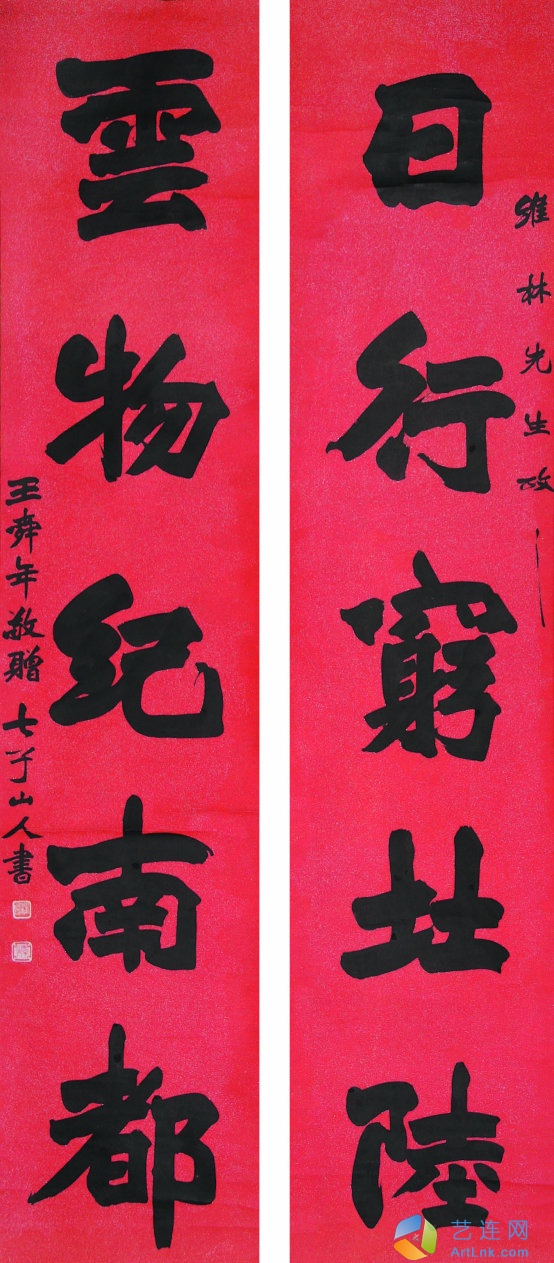 維林先生政
日行窮北陸
雲物紀南都
王舜年敬贈 七子山人書
艺连网
ArtLnk.com